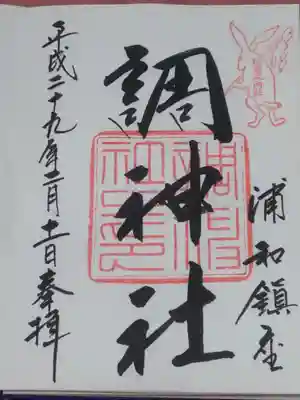 浦和鎮座
調神社
平成二十九年二月十一日奉拝